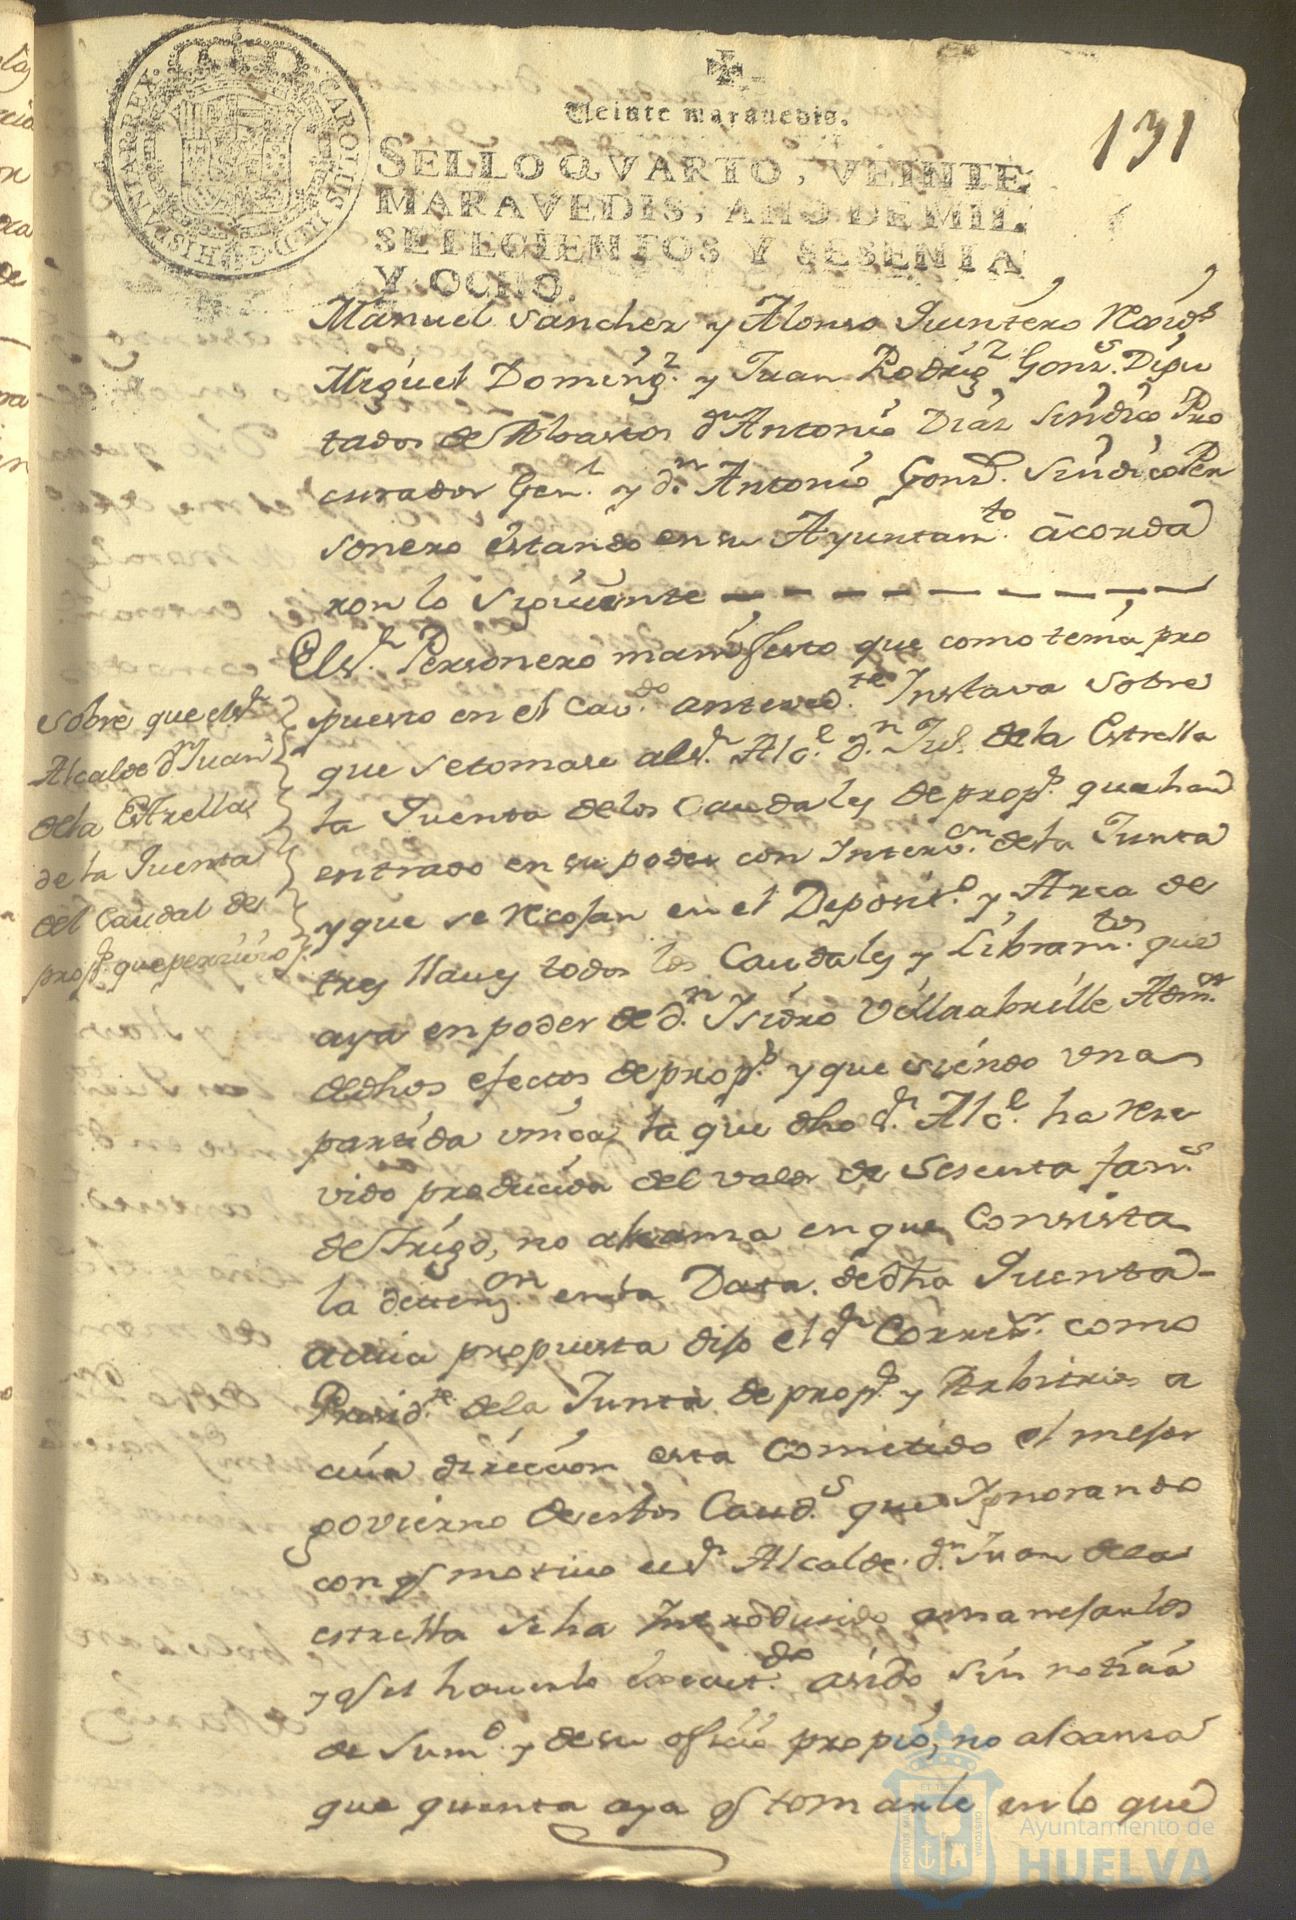 131
Veinte maravedis.
SELLO QVARTO, VEINTE
MARAVEDIS, AÑO DE MIL
SETECIENTOS Y SESENTA
Y OCHO.
CAROLUS III D G HISPANIAR REX
Manuel Sanchez y Alonso Quintero Rexid.s
Miguel Doming.z y Juan Rodrig.z Gonz.s Dipu
tados de Abastos d.n Antonio Diaz Sindico Pro
curador Gen.l y d.n Antonio Gonz. Sindico Per
sonero estando en su Ayuntam.to acorda
ron lo siguiente
El s.r Personero manifesto que como tenia pro
puesto en el Cav.do anteced.te Instava sobre
que se tomase al s.r Alc.e d.n Ju.o de la Estrella
la Quenta de los Caudales de prop.s que han
entrado en su poder con Interv.on de la Junta
y que se recojan en el Deposit.o y Arca de
tres llaves todos los Caudales y Libram.tos que
aya en poder de d.n Isidro Villaabrille Adm.or
de dhos efectos de prop.s y que siendo una
partida unica la que dho s.r Alc.e ha rese
vido producida del valor de Sesenta fan.s
de trigo, no alcanza en que Consista
la detenz.on en la Data de dha Quenta
a cuia propuesta dijo el s.r Corre.r como
Presid.te de la Junta de prop.s y Arbitrios a
cuia direccion esta Cometido el mejor
govierno de estos Caud.s que Ignorando
con q.e motivo el s.r Alcalde d.n Juan de la
estrella se ha Introducido a manejarlos
y q.e el haverlo executado.do a sido sin noticia
de Sum.d y de su oficio propio, no alcanza
que quenta aya q.e tomarle en lo que
Sobre que el s.r
Alcalde d.n Juan
de la Estrella
de la Quenta
del Caudal de
prop.s que percivio
Ayuntamiento de
HUELVA